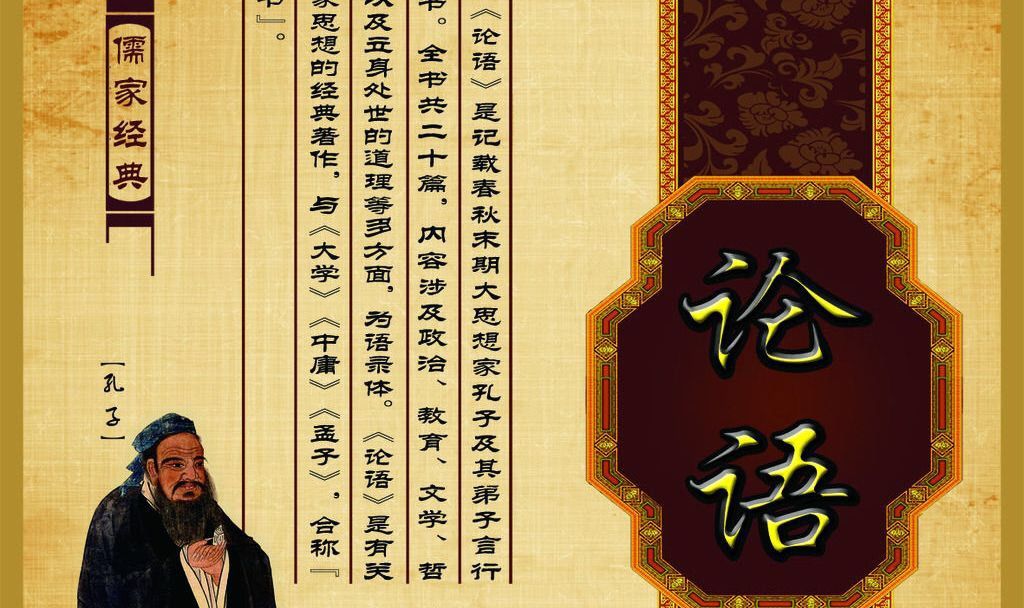 论语
《论语》是记载春秋末期大思想家孔子及其弟子言行
书。全书共二十篇，内容涉及政治、教育、文学、哲
以及立身处世的道理等多方面，为语录体。《论语》是有关
家思想的经典著作，与《大学》《中庸》《孟子》，合称『
书』。
儒家经典
［孔子］